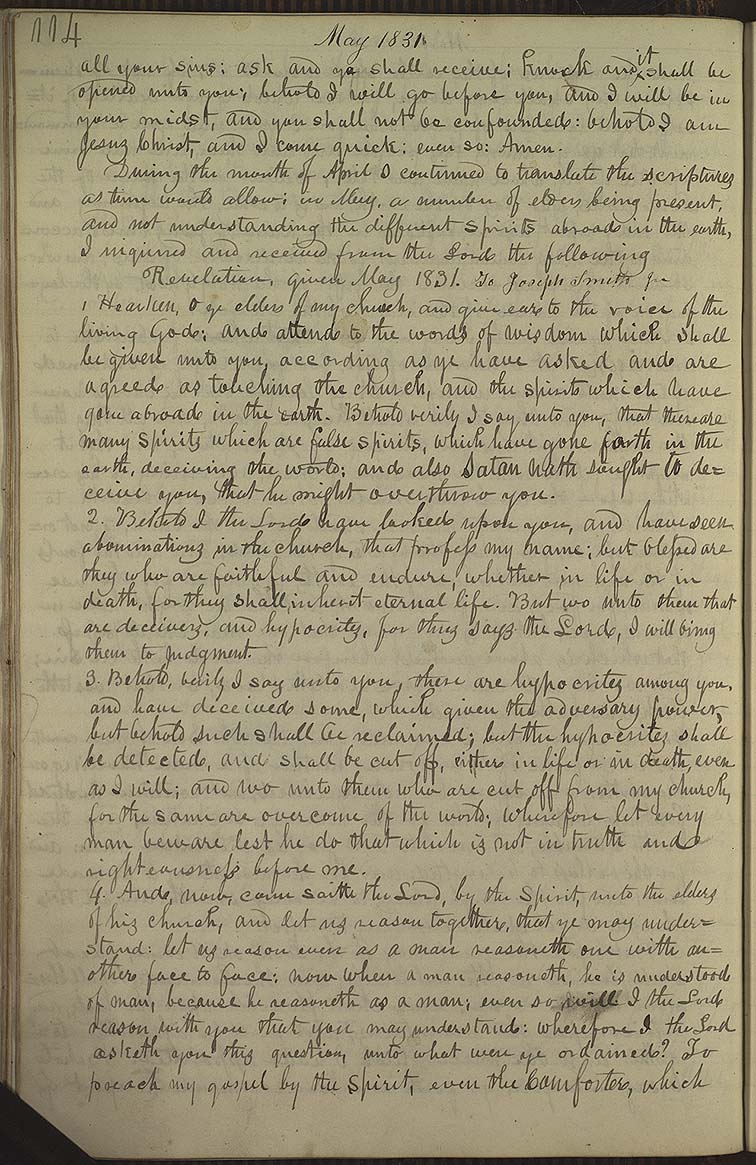 114
May 1831.
all your sins: ask and ye shall receive; knock and it shall be
opened unto you; behold I will go before you, and I will be in
your midst, and you shall not be confounded: behold I am
Jesus Christ, and I come quick: even so: Amen.
During the month of April I continued to translate the scriptures
as time would allow: in May, a number of elders being present,
and not understanding the different spirits abroad in the earth,
I inquired and received from the Lord the following
Revelation, given May 1831. To Joseph Smith jr
1 Hearken, O ye elders of my church, and give ear to the voice of the
living God; and attend to the words of wisdom which shall
be given unto you, according as ye have asked and are
agreed as touching the church, and the spirits which have
gone abroad in the earth. Behold verily I say unto you, that there are
many spirits which are false spirits, which have gone forth in the
earth, deceiving the world; and also Satan hath sought to de=
ceive you, that he might overthrow you.
2. Behold I the Lord have looked upon you, and have seen
abominations in the church, that profess my name; but blessed are
they who are faithful and endure, whether in life or in
death, for they shall inherit eternal life. But wo unto them that
are deceivers, and hypocrites, for thus says the Lord, I will bring
them to judgment.
3. Behold, verily I say unto you, there are hypocrites among you,
and have deceived some, which given the adversary power,
but behold such shall be reclaimed; but the hypocrites shall
be detected, and shall be cut off, either in life or in death, even
as I will; and wo unto them who are cut off from my church,
for the same are overcome of the world; wherefore let every
man beware lest he do that which is not in truth and
righteousness before me.
4. And, now, come saith the Lord, by the Spirit, unto the elders
of his church, and let us reason together, that ye may under=
stand: let us reason even as a man reasoneth one with an=
other face to face; now when a man reasoneth, he is understood
of man, because he reasoneth as a man; even so will I the Lord
reason with you that you may understand: wherefore I the Lord
asketh you this question, unto what were ye ordained? To
preach my gospel by the Spirit, even the Comforter, which